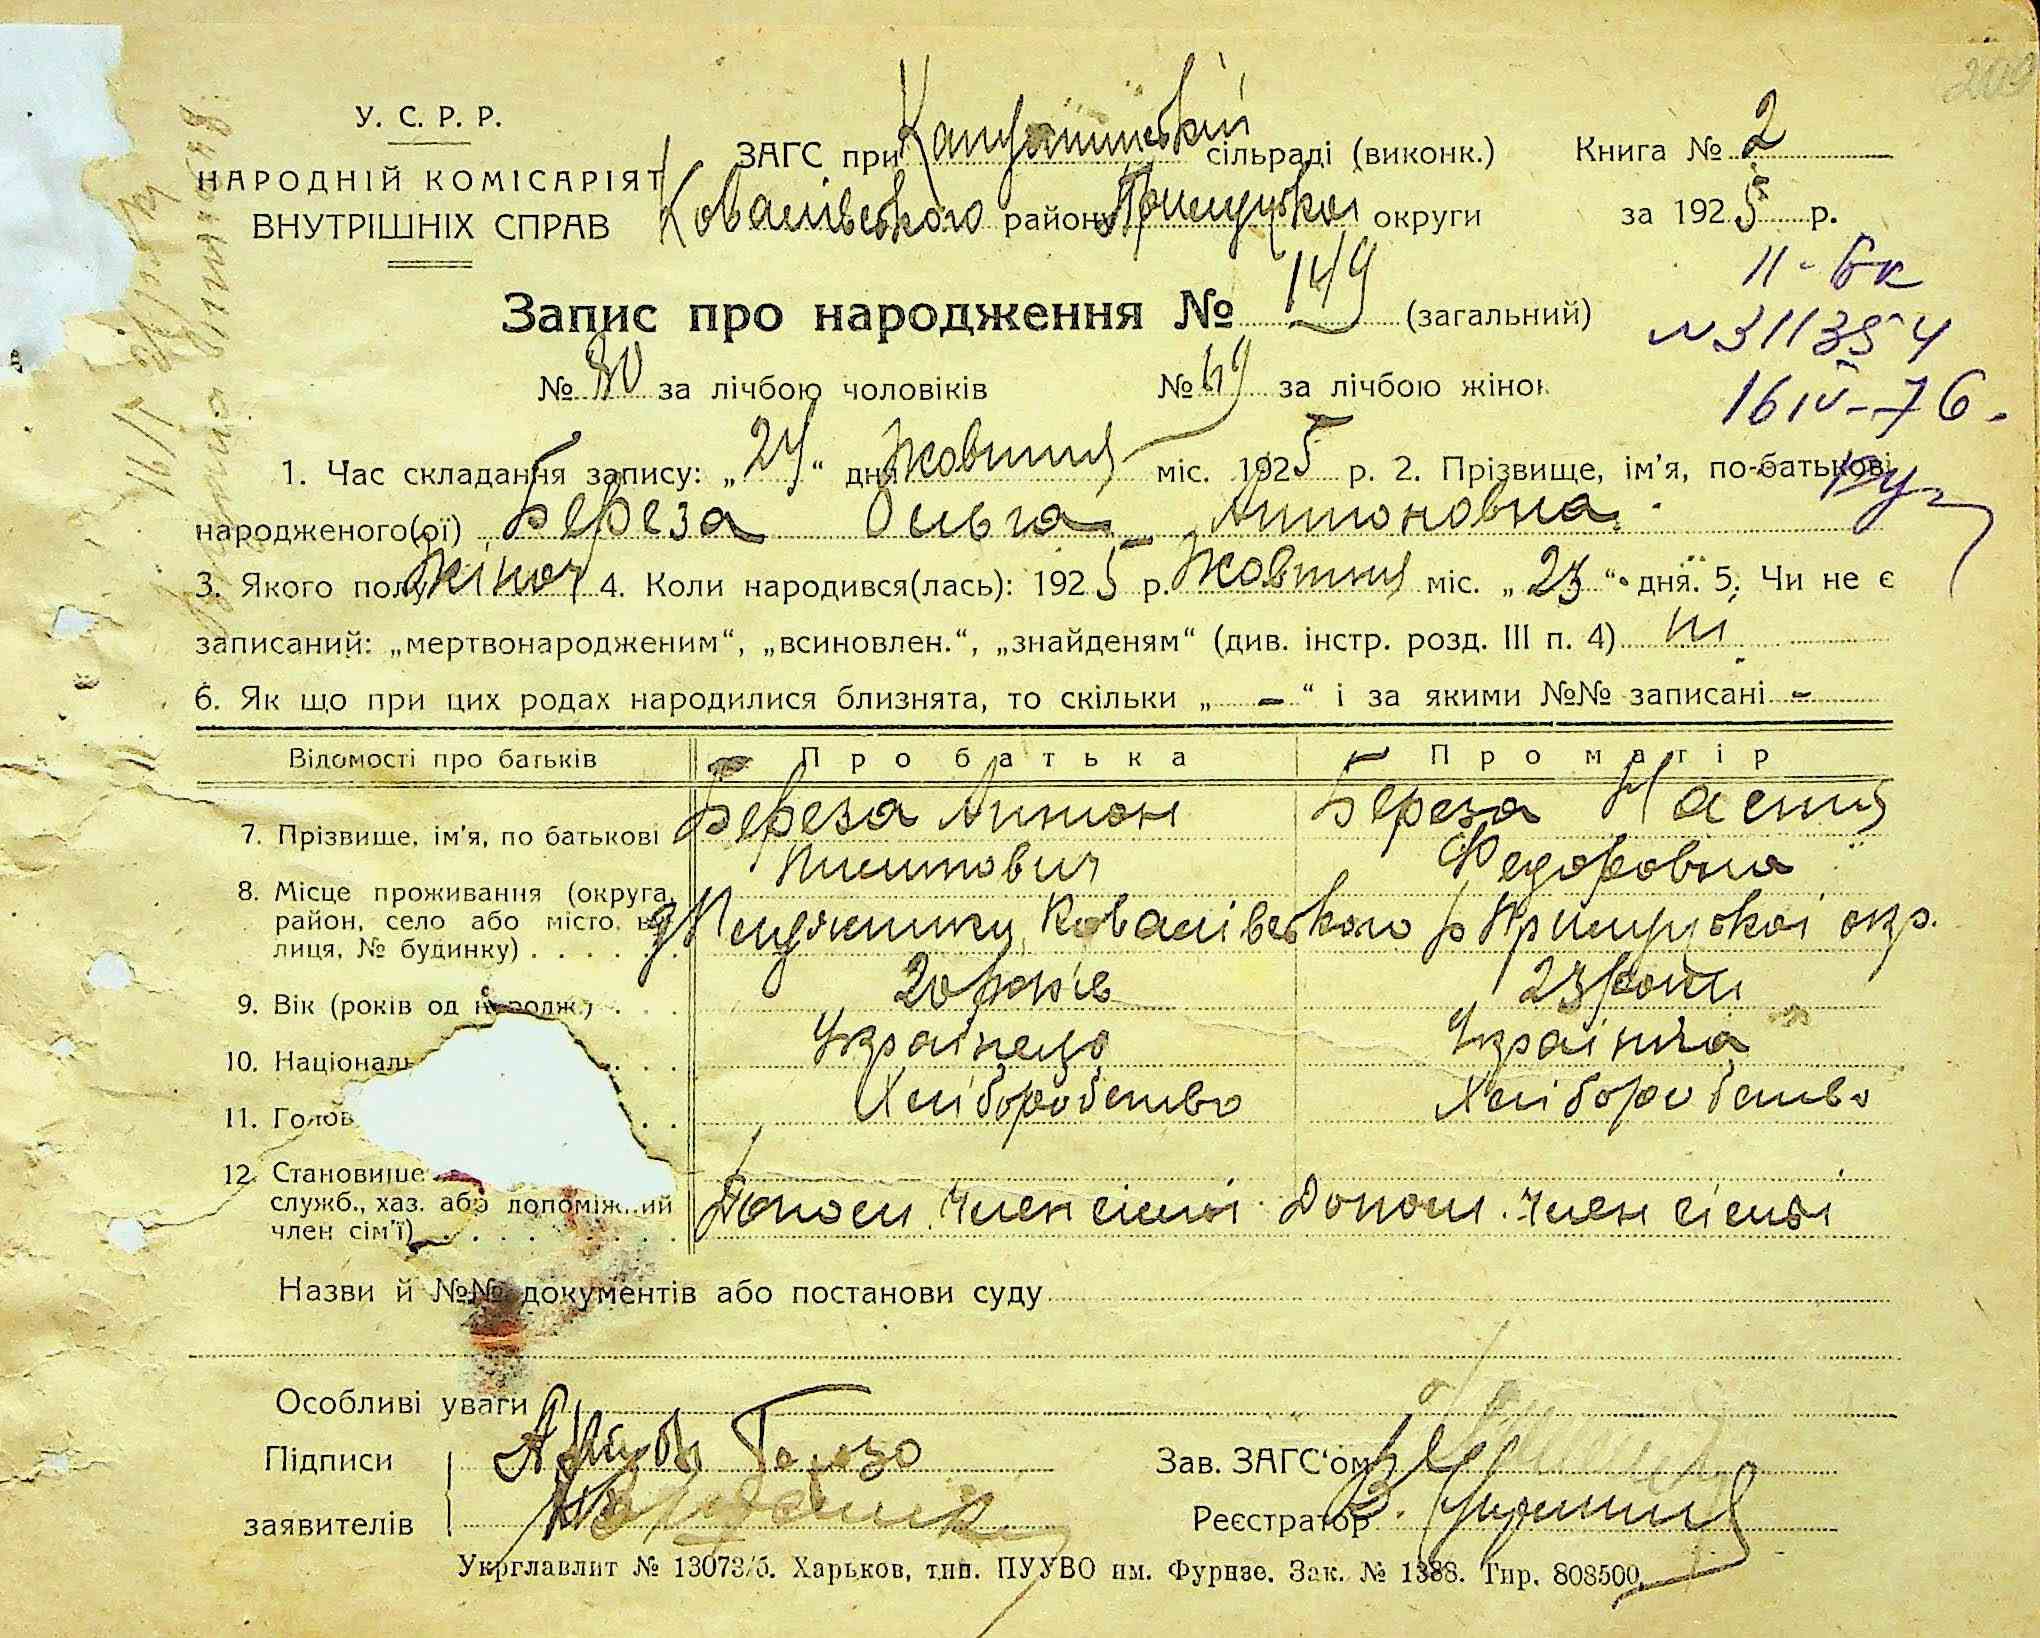 У. С. Р. Р.
НАРОДНІЙ КОМІСАРІЯТ
ВНУТРІШНІХ СПРАВ
ЗАГС при сільраді (виконк.)
Ковалівського району Прилуцькоі округи
Книга № 2
за 1925 р.
11-бк
N 311354
16 IV-76.
Запис про народження № 149 (загальний)
№ 80 за лічбою чоловіків № 69 за лічбою жінок
1. Час складання запису: „24“ дня Жовтня міс. 1925 р. 2. Прізвище, ім'я, по-батькові
народженого(ої) Береза Ольга Антоновна
3. Якого полу жіноч 4. Коли народився(лась): 1925 р. Жовтня міс. „23“ дня. 5. Чи не є
записаний: „мертвонародженим“, „всиновлен.“, „знайденям“ (див. інстр. розд. III п. 4) ні
6. Як що при цих родах народилися близнята, то скільки „ - “ і за якими №№ записані -
Відомості про батьків Про батька Про матір
7. Прізвище, ім'я, по батькові Береза Антон Береза Настя
Федоровна
8. Місце проживання (округа,
район, село або місто, ву-
лиця, № будинку) Ковалівського р Прилуцькоі окр.
9. Вік (років од 20 років 23 роки
10. Національ Украінець Украінка
11. Голов Хліборобство Хліборобство
12. Становище
служб., хаз. або допоміжний
член сім'ї) Допом. член сімьі Допом. член сімьі
Назви й №№ документів або постанови суду
Особливі уваги
Підписи
заявителів
Зав. ЗАГС'ом
Реєстратор
Укрглавлит № 13073/б. Харьков, тип. ПУУВО им. Фурнзе. Зак. № 1388. Тир. 808500.